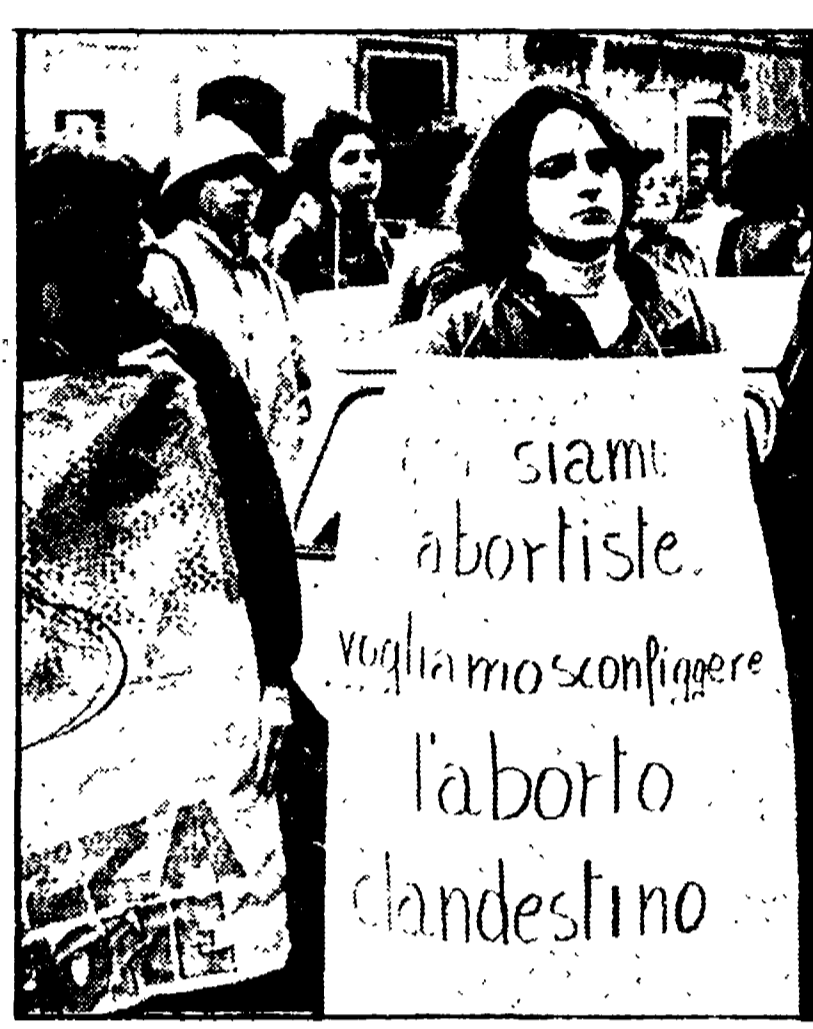 siamo
abortiste
vogliamo sconfiggere
l'aborto
clandestino